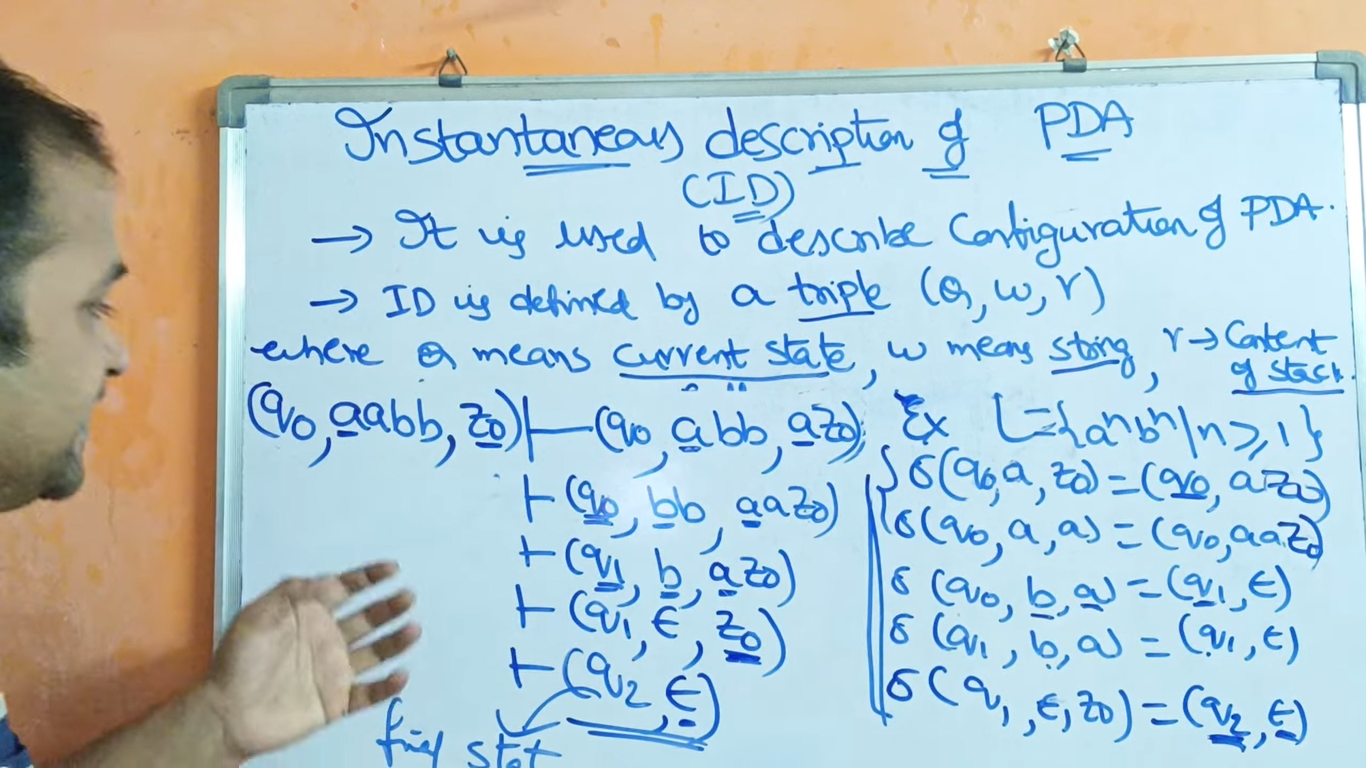 Instantaneous description of PDA
(ID)
→ It is used to describe Configuration of PDA.
→ ID is defined by a triple (Q, w, r)
where Q means current state, w means string, r → Content of stack.
(q0, aabb, z0) ⊢ (q0, abb, az0)
⊢ (q0, bb, aaz0)
⊢ (q1, b, az0)
⊢ (q1, ε, z0)
⊢ (q2, ε)
final stat
Ex L = {aⁿbⁿ | n ≥ 1}
δ(q0, a, z0) = (q0, az0)
δ(q0, a, a) = (q0, aaz0)
δ(q0, b, a) = (q1, ε)
δ(q1, b, a) = (q1, ε)
δ(q1, ε, z0) = (q2, ε)